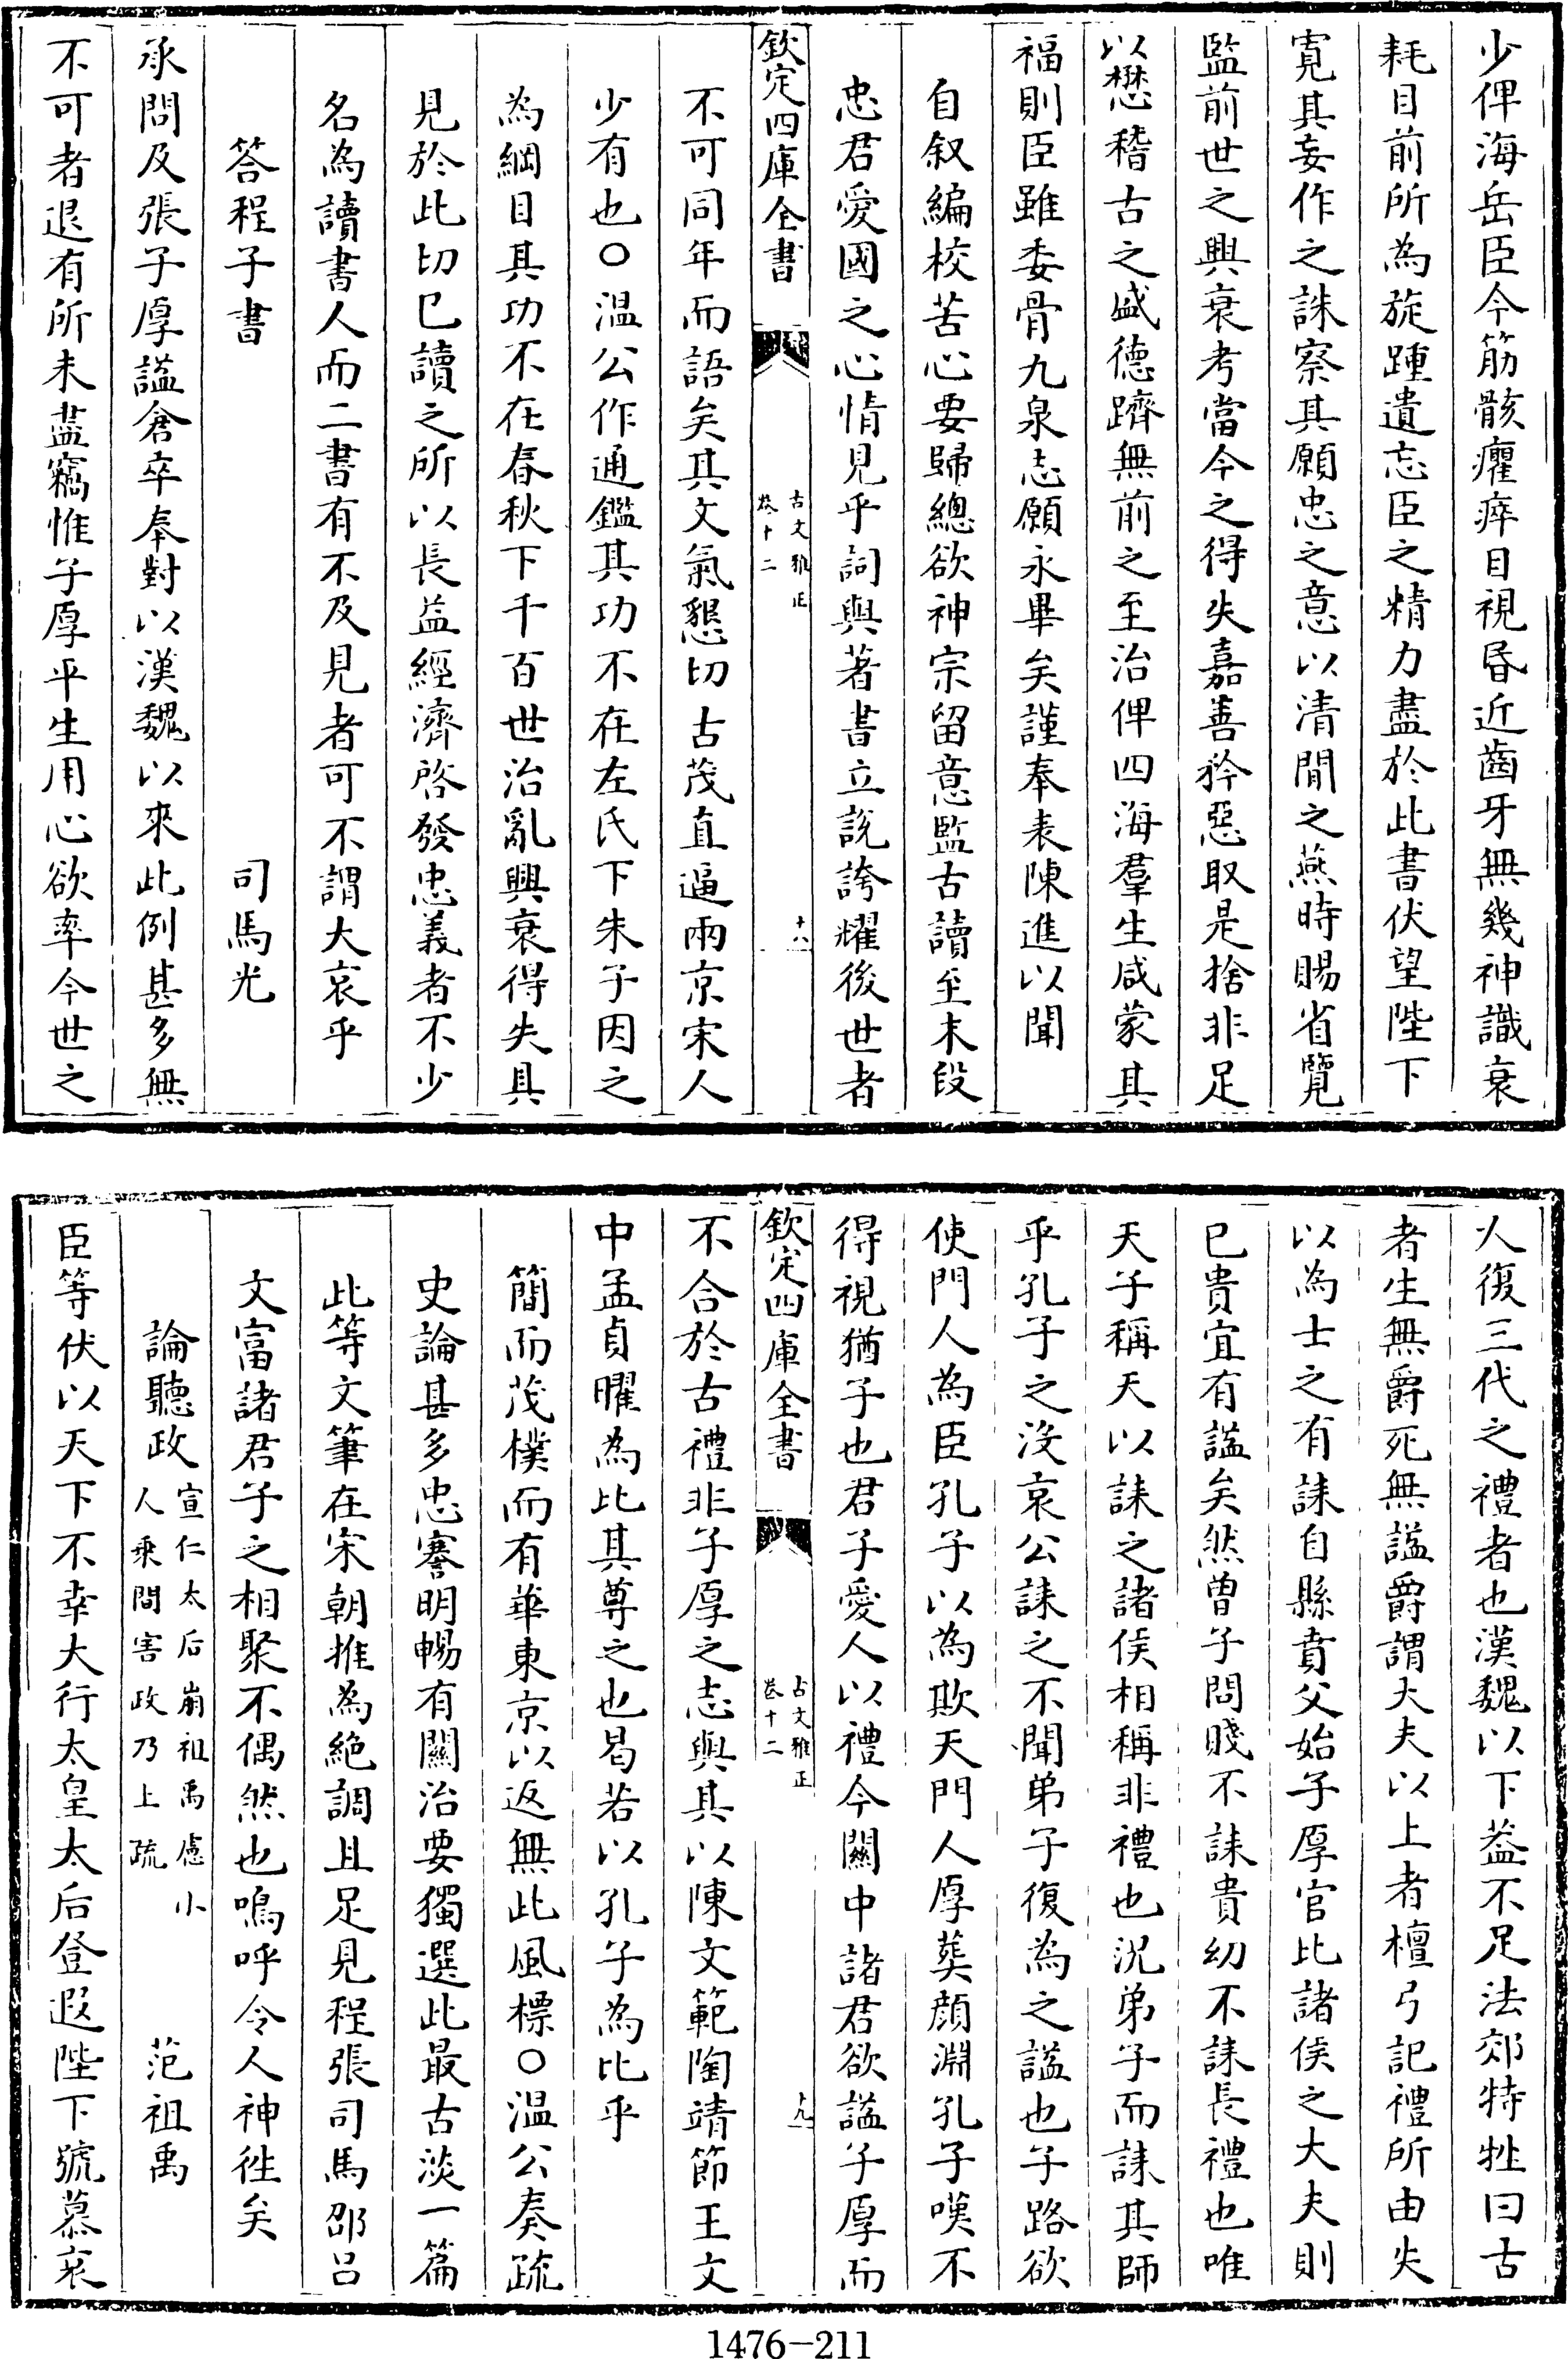 少俾海岳臣今筋骸癯瘁目視昬近齒牙無幾神識衰
耗目前所為旋踵遺忘臣之精力盡於此書伏望陛下
寛其妄作之誅察其願忠之意以清閒之燕時賜省覽
監前世之興衰考當今之得失嘉善矜惡取是捨非足
以懋稽古之盛德躋無前之至治俾四海羣生咸蒙其
福則臣雖委骨九泉志願永畢矣謹奉表陳進以聞
自叙編校苦心要歸總欲神宗留意監古讀至末段
忠君愛國之心情見乎詞與著書立說誇耀後世者
欽定四庫全書
古文雅正
卷十二
十八
不可同年而語矣其文氣懇切古茂直逼兩京宋人
少有也○温公作通鑑其功不在左氏下朱子因之
為綱目其功不在春秋下千百世治亂興衰得失具
見於此切已讀之所以長益經濟啓發忠義者不少
名為讀書人而二書有不及見者可不謂大哀乎
答程子書
司馬光
承問及張子厚諡倉卒奉對以漢魏以來此例甚多無
不可者退有所未盡竊惟子厚平生用心欲率今世之
人復三代之禮者也漢魏以下葢不足法郊特牲曰古
者生無爵死無諡爵謂大夫以上者檀弓記禮所由失
以為士之有誄自縣賁父始子厚官比諸侯之大夫則
已貴宜有諡矣然曾子問賤不誄貴幼不誄長禮也唯
天子稱天以誄之諸侯相稱非禮也況弟子而誄其師
乎孔子之沒哀公誄之不聞弟子復為之諡也子路欲
使門人為臣孔子以為欺天門人厚葬顔淵孔子嘆不
得視猶子也君子愛人以禮今關中諸君欲諡子厚而
欽定四庫全書
古文雅正
卷十二
十九
不合於古禮非子厚之志與其以陳文範陶靖節王文
中孟貞曜為比其尊之也曷若以孔子為比乎
簡而茂樸而有華東京以返無此風標○温公奏疏
史論甚多忠謇明暢有關治要獨選此最古淡一篇
此等文筆在宋朝推為絶調且足見程張司馬邵呂
文富諸君子之相聚不偶然也鳴呼令人神徃矣
論聽政
宣仁太后崩祖禹慮小
人乘間害政乃上疏
范祖禹
臣等伏以天下不幸大行太皇太后登遐陛下號慕哀
1476-211